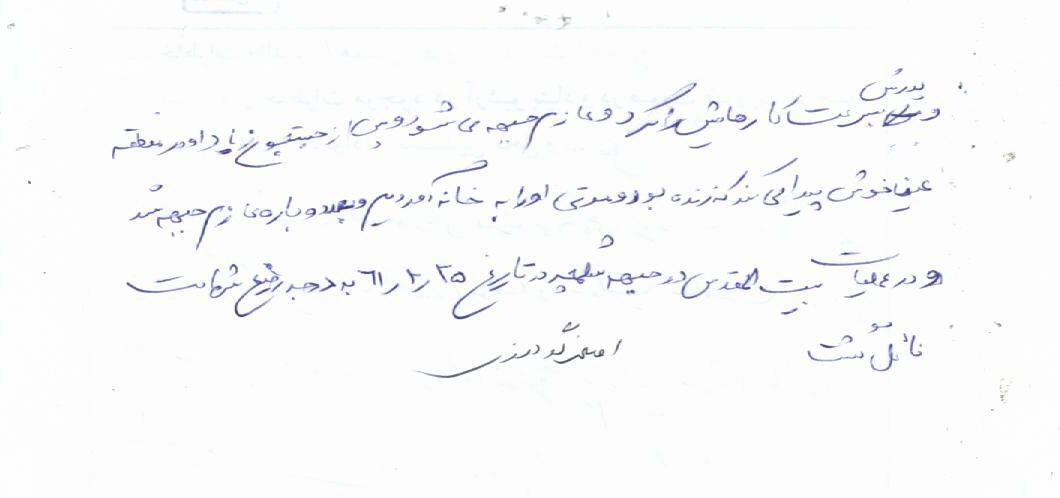 پدرش
و بسرعت کارهایش را کرد و عازم جبهه می شود و پس از جستجوی زیاد او در منطقه
عین خوش پیدا می کند که زنده بود و مدتی او را به خانه آوردیم و بعد دوباره عازم جبهه شد
و در عملیات بیت المقدس در جبهه شلمچه در تاریخ ۶۱/۲/۲۵ به درجه رفیع شهادت
نائل گشت
گودرزی